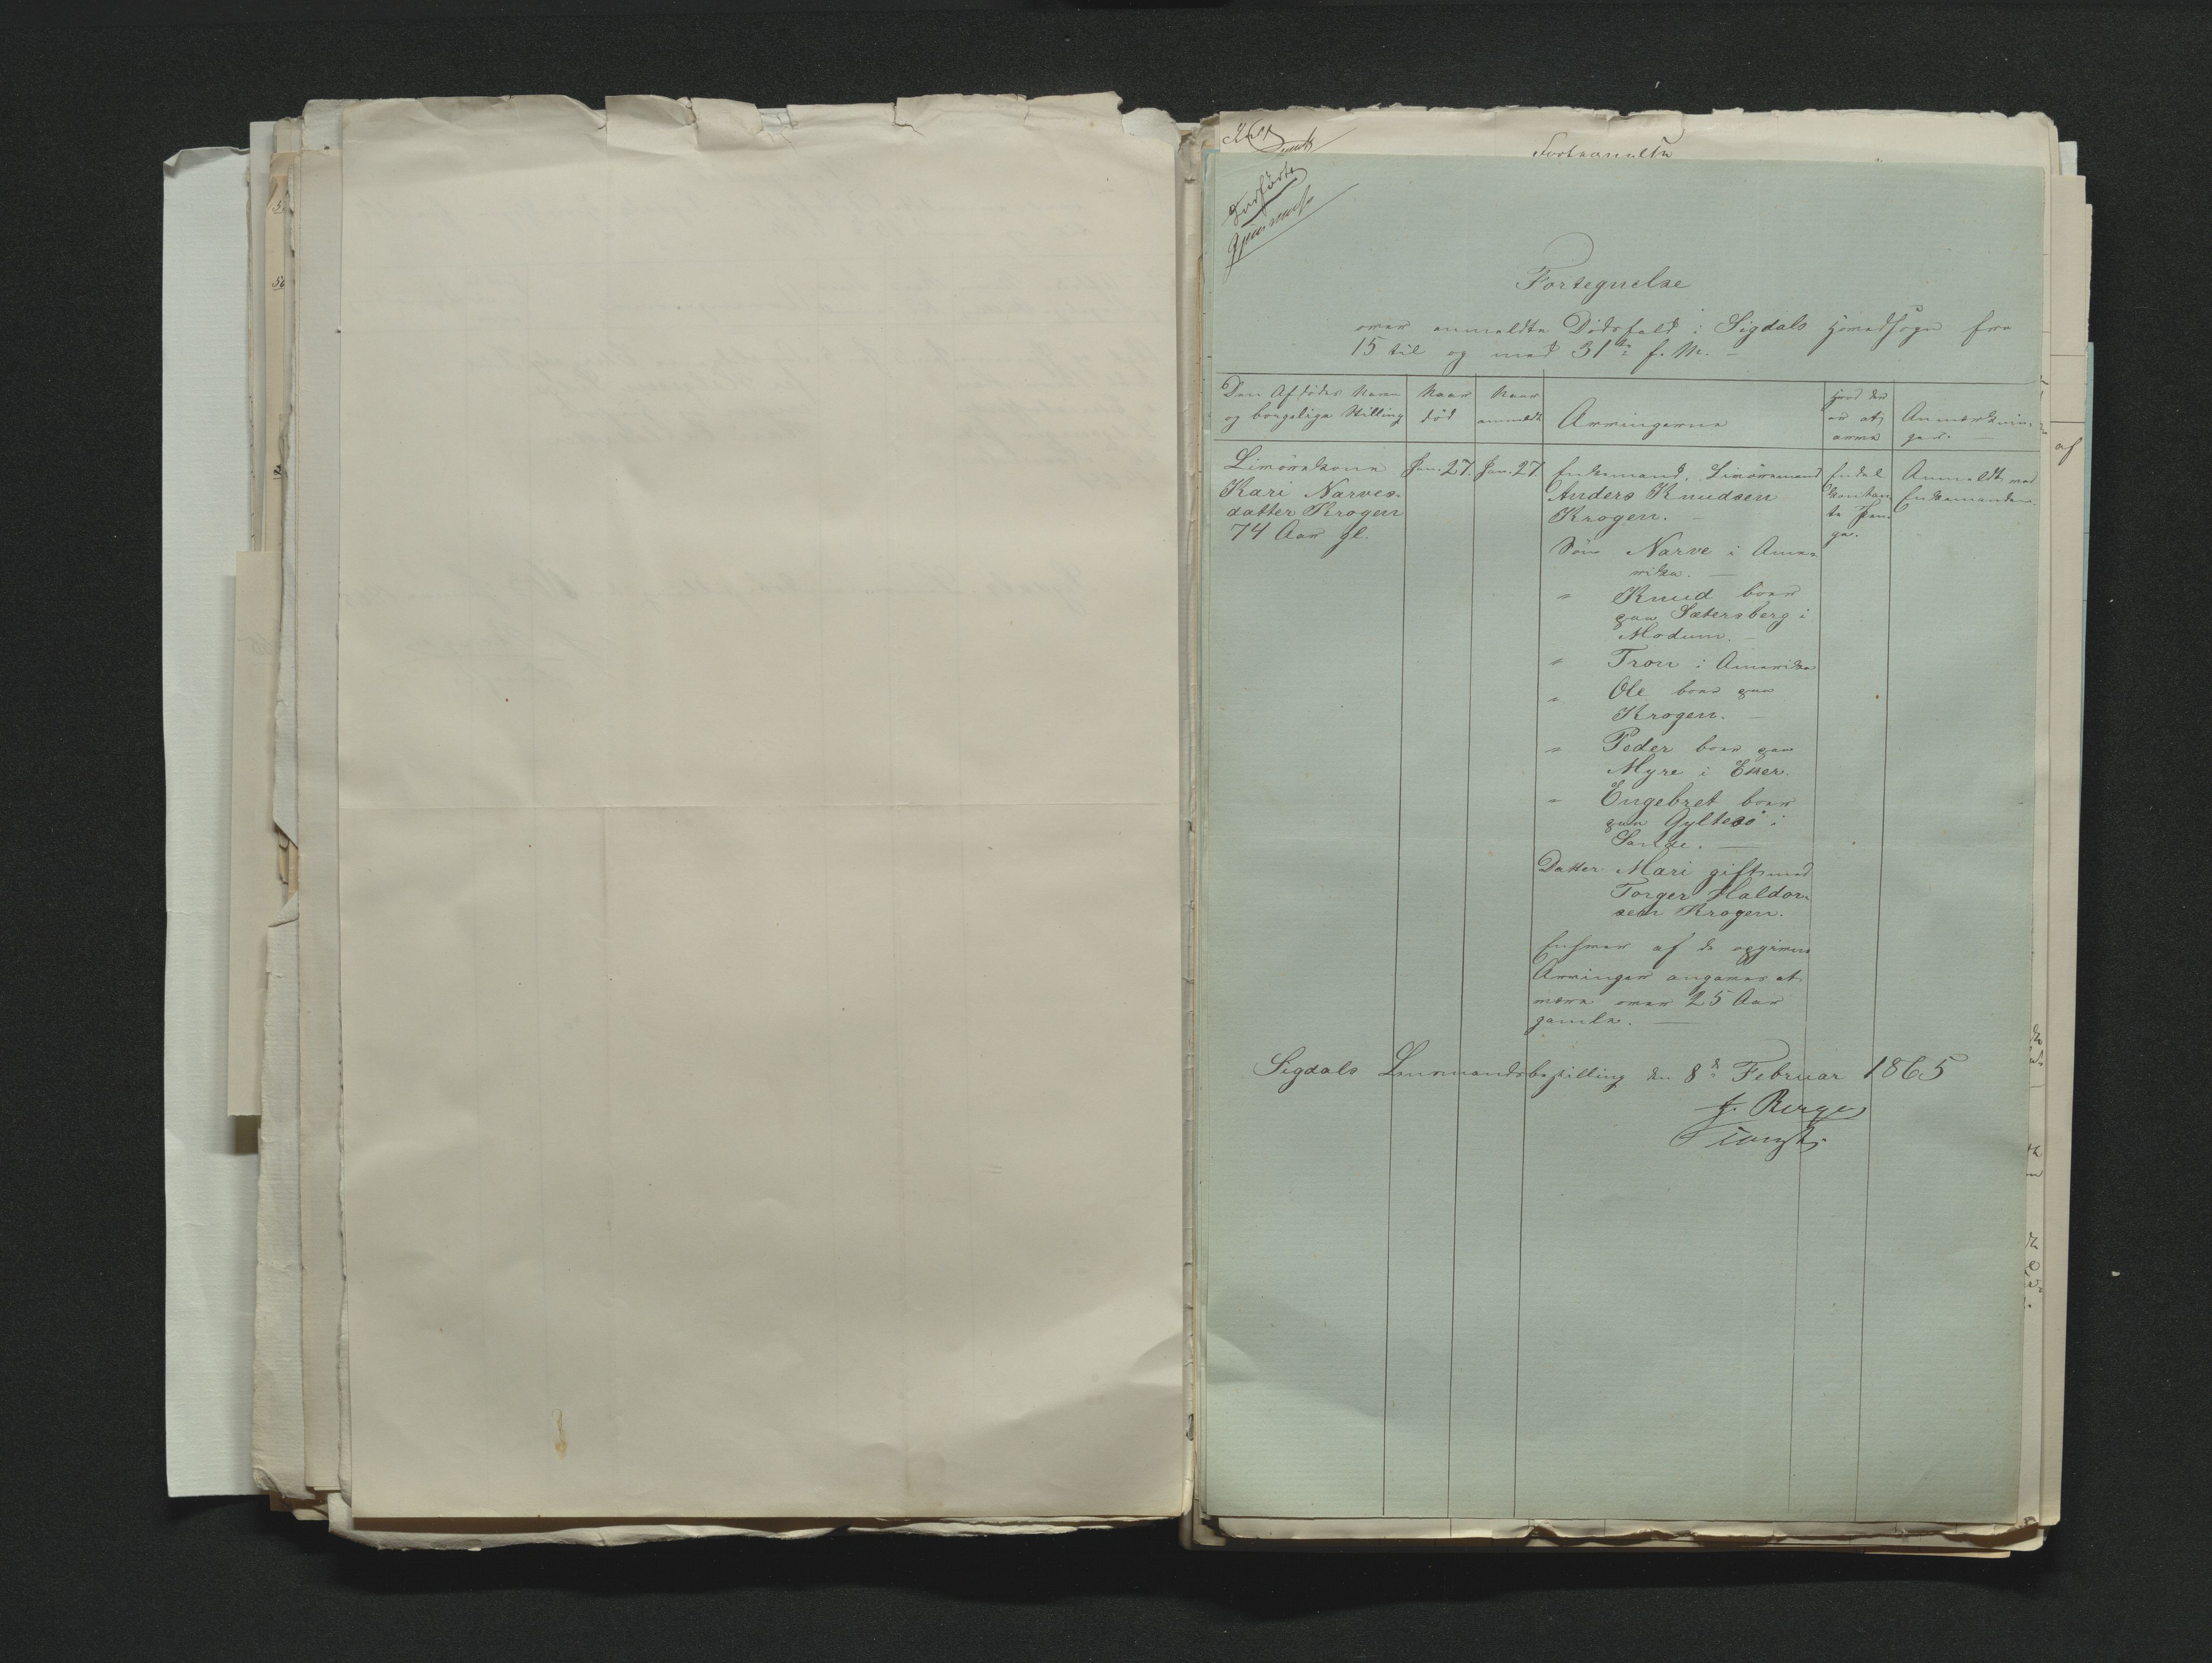 Fortegnelse
Indført
Fortegnelse
over anmeldte Dødsfald i Sigdals Hovedsogn fra
15 til og med 31te f. M. –
Den Afdødes Navn og borgelige Stilling
Naar død
Naar anmeldt
Arvingerne
Hvad der er at arve
Anmærkninger. –
Livørekone
Kari Narves-
datter Krogen
74 Aar gl.
Jan. 27.
Jan. 27
Enkemand, Livøremand
Anders Knudsen
Krogen. –
Søn Narve i Ame-
rika. –
" Knud boer
paa Sætersberg i
Modum. –
" Tron i Amerika
" Ole boer paa
Krogen. –
" Peder boer paa
Myre i Eker.
" Engebret boer
paa Gyltesø i
Sande. –
Datter Mari gift med
Torger Haldor-
sen Krogen.
Enhver af de opgivne
Arvinger angaves at
være over 25 Aar
gamle. –
Endel
kontan-
te Pen-
ge.
Anmeldt ved
Enkemanden.
Sigdals Lensmandsbestilling den 8de Februar 1865
J. Berger
af